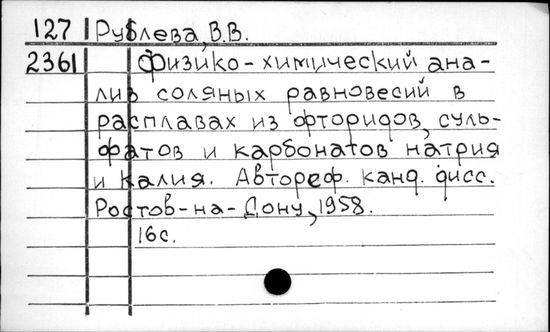 127 Рублева, В.В.
2361 Физико-химический ана-
лиз соляных равновесий в
расплавах из фторидов, суль-
фатов и карбонатов натрия
и калия. Автореф. канд. дисс.
Ростов-на-Дону, 1958.
16с.